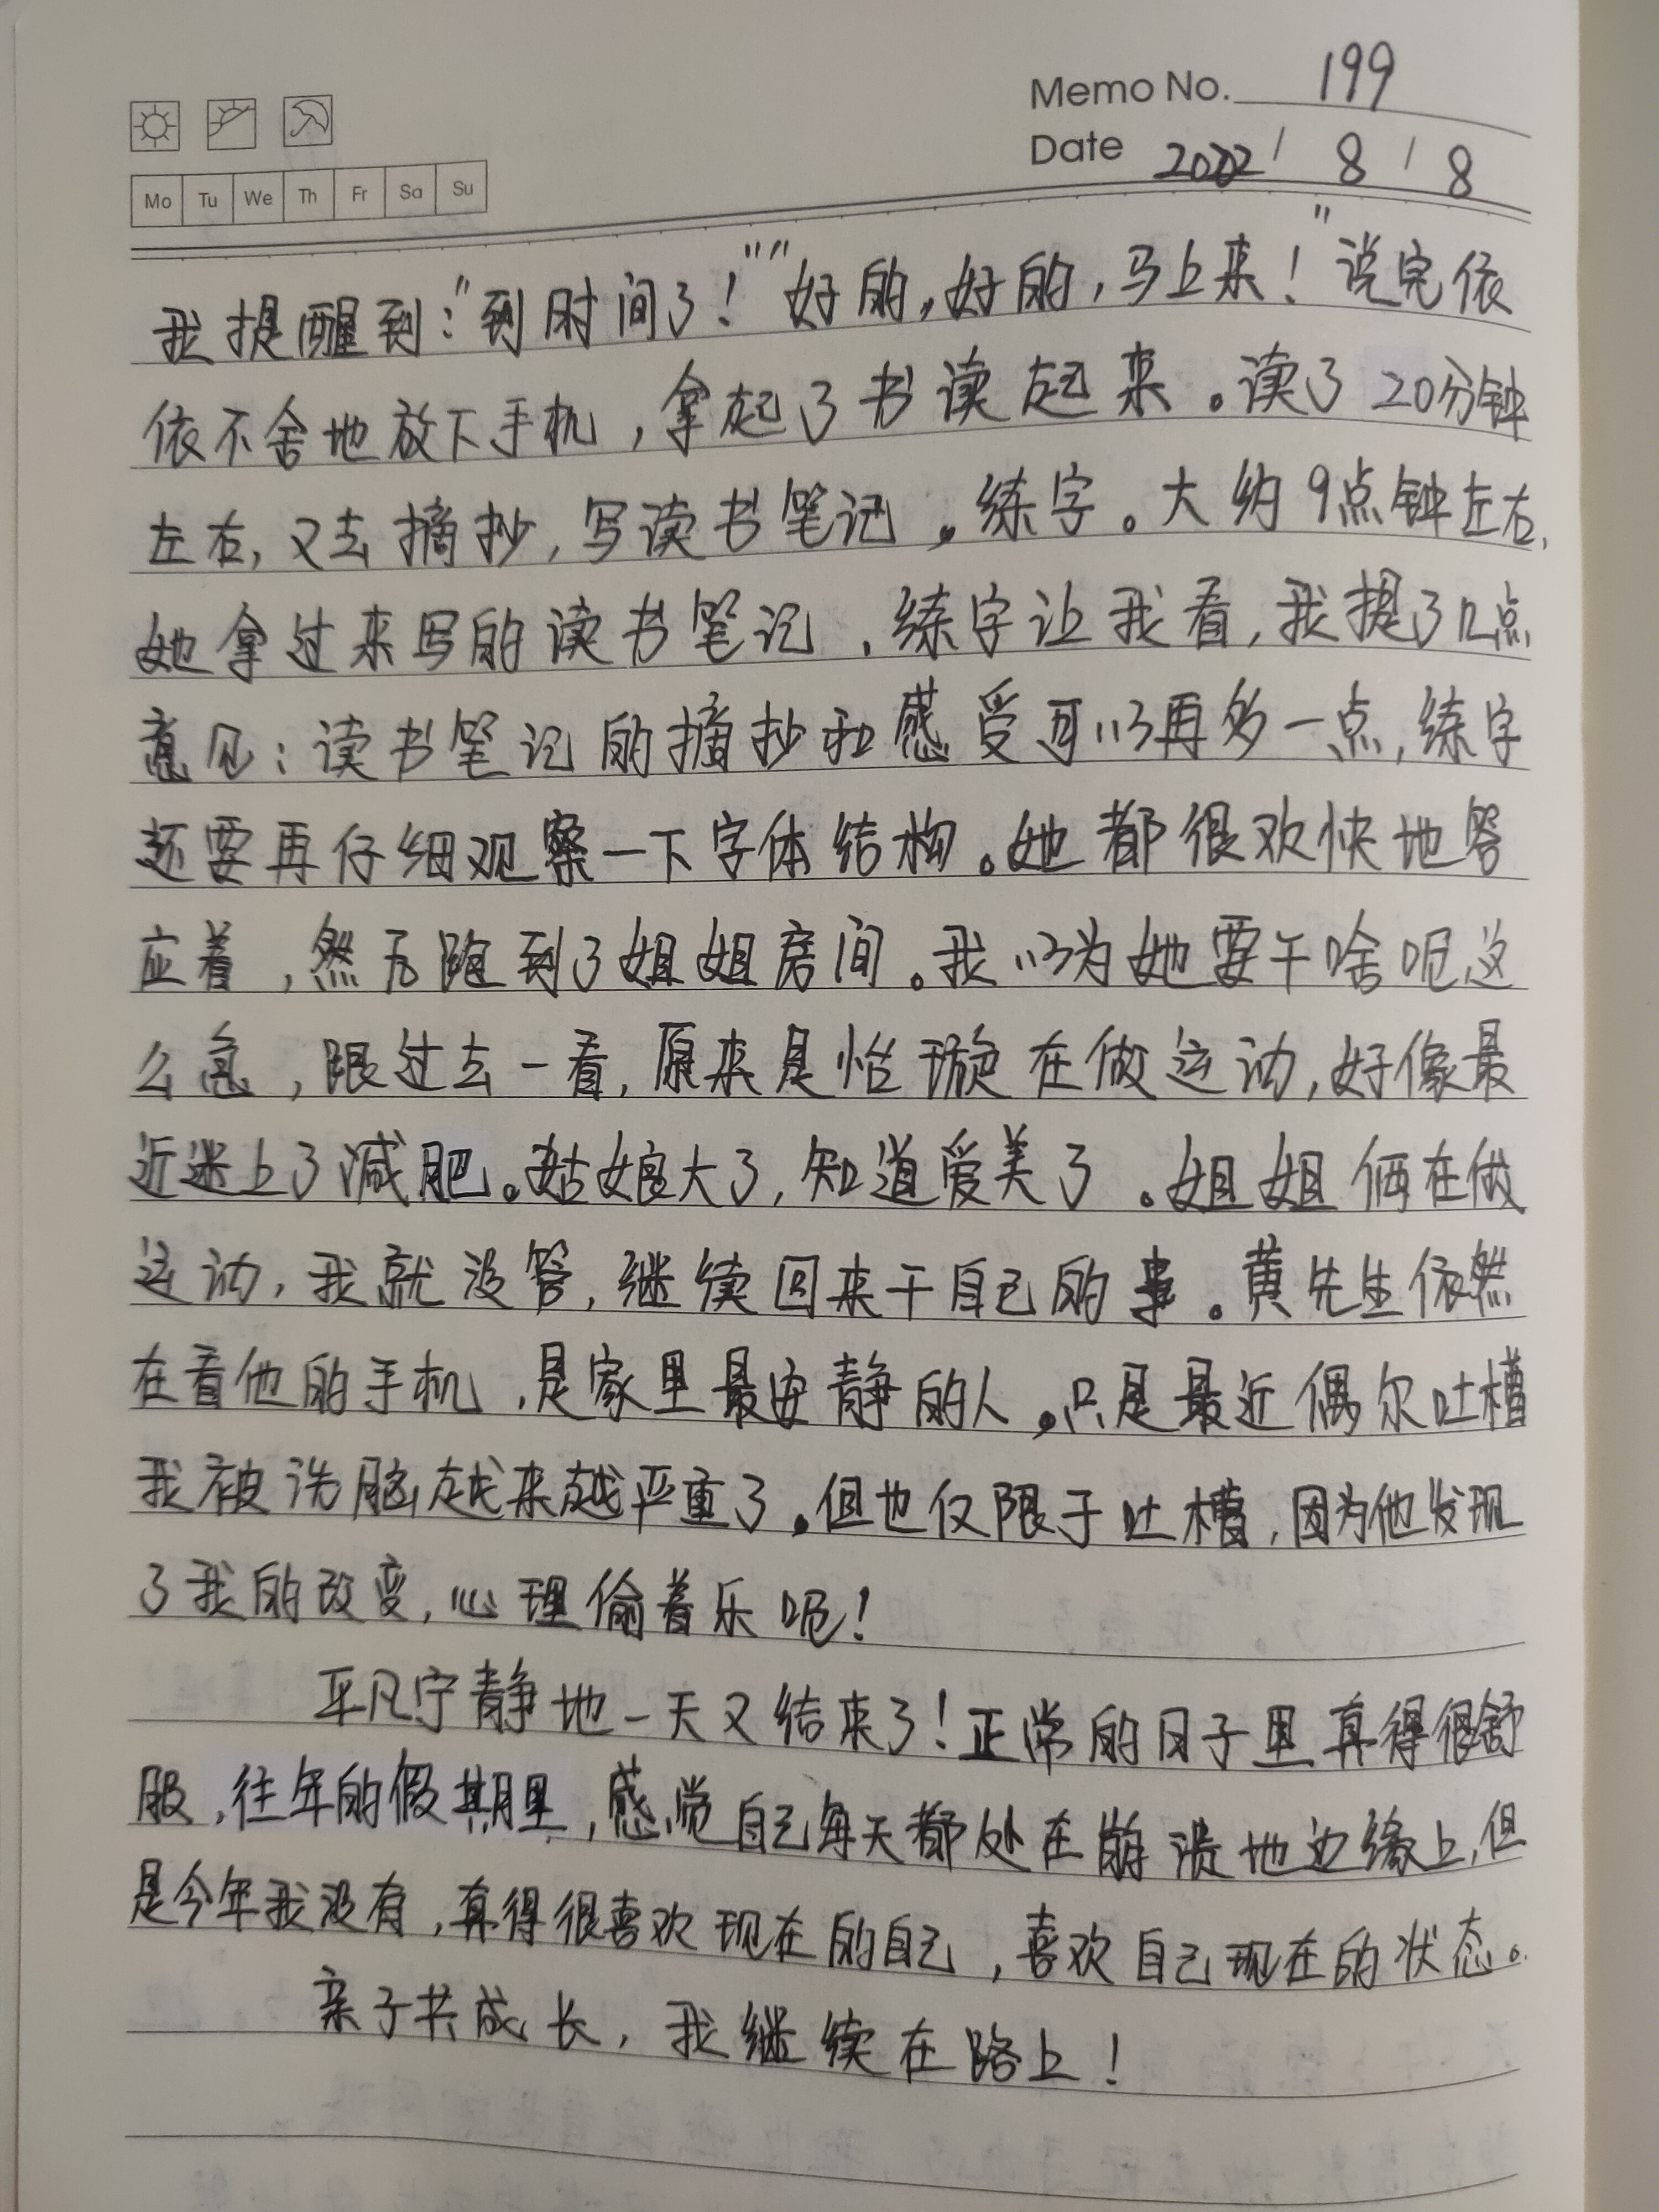 Memo No. 199
Date 2022 / 8 / 8
Mo Tu We Th Fr Sa Su
我提醒到:“到时间了!”“好的,好的,马上来!”说完依
依不舍地放下手机,拿起了书读起来。读了20分钟
左右,又去摘抄,写读书笔记,练字。大约9点钟左右,
她拿过来写的读书笔记,练字让我看,我提了几点
意见:读书笔记的摘抄和感受可以再多一点,练字
还要再仔细观察一下字体结构。她都很欢快地答
应着,然后跑到了姐姐房间。我以为她要干啥呢这
么急,跟过去一看,原来是怡璇在做运动,好像最
近迷上了减肥。姑娘大了,知道爱美了。姐姐俩在做
运动,我就没管,继续回来干自己的事。黄先生依然
在看他的手机,是家里最安静的人。只是最近偶尔吐槽
我被洗脑越来越严重了。但也仅限于吐槽,因为他发现
了我的改变,心理偷着乐呢!
平凡宁静地一天又结束了!正常的日子里真得很舒
服,往年的假期里,感觉自己每天都处在崩溃地边缘上,但
是今年我没有,真得很喜欢现在的自己,喜欢自己现在的状态。
亲子共成长,我继续在路上!